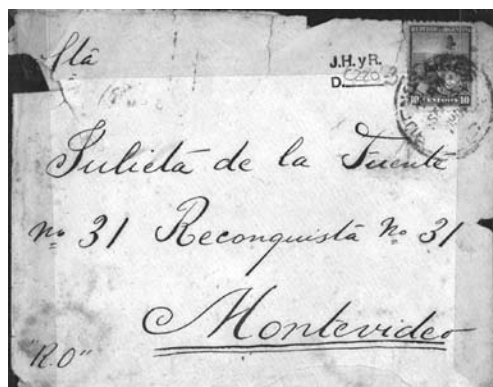 Sta
J.H. y R.
D.
10 CENTAVOS 10
Julieta de la Fuente
nº 31 Reconquista nº 31
Montevideo
"R.O"